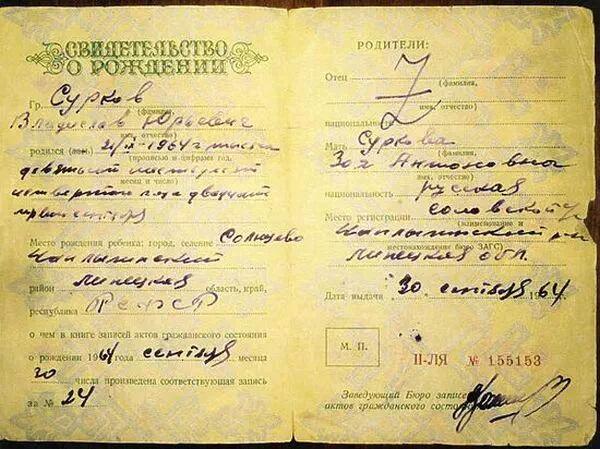 СВИДЕТЕЛЬСТВО
О РОЖДЕНИИ
Гр. Сурков
(фамилия,
Владислав Юрьевич
имя, отчество)
родился 21/IX-1964 г тысяча
(прописью и цифрами год,
девятьсот шестьдесят
месяц и число)
четвертого года двадцать
первого сентября
Место рождения ребенка: город, селение Солнцево
Чаплыгинский
район Липецкая область, край,
республика РСФСР
о чем в книге записей актов гражданского состояния
о рождении 1964 года сентября месяца
30 числа произведена соответствующая запись
за № 24
РОДИТЕЛИ:
Отец
(фамилия,
имя, отчество)
национальность
Мать Суркова
(фамилия,
Зоя Антоновна
имя, отчество)
национальность русская
Место регистрации Соловской
(наименование и
Чаплыгинский р-н
местонахождение бюро ЗАГС)
Липецкая обл.
Дата выдачи 30 сентября 1964
М. П.
II-ЛЯ № 155153
Заведующий Бюро записей
актов гражданского состояния